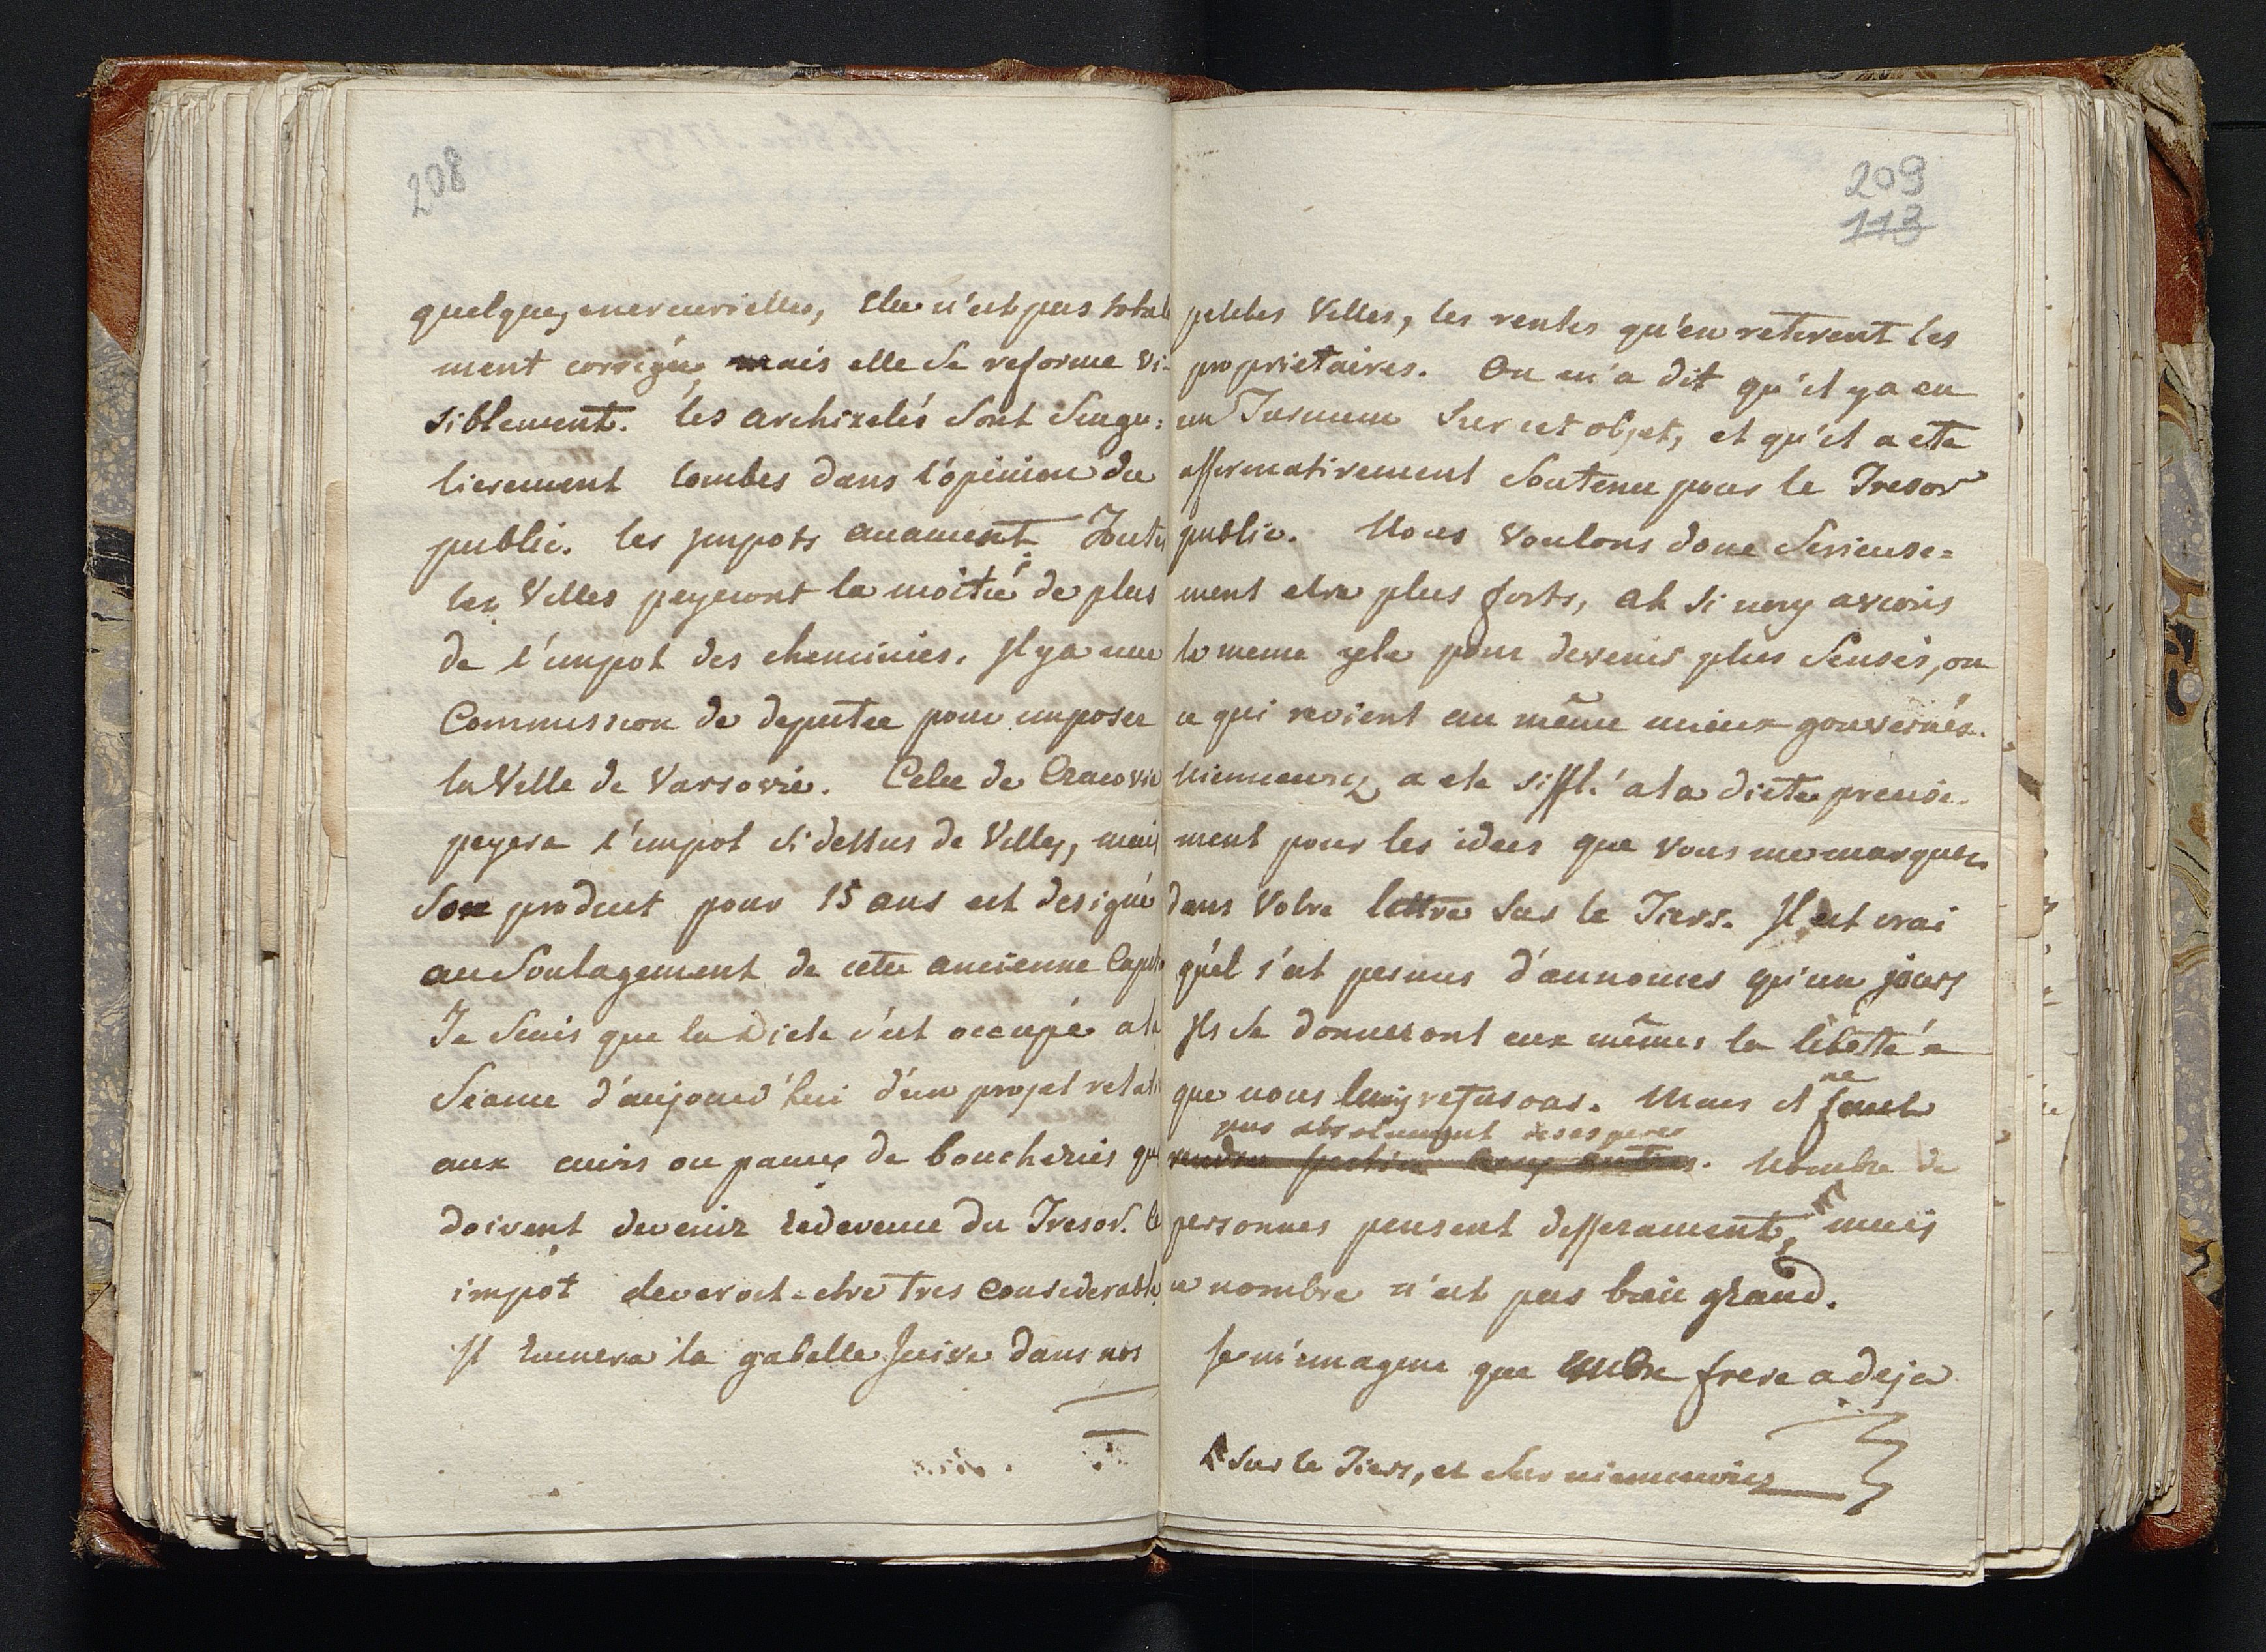 208
quelques mercurielles, Elle n'est pas total
ment corrigée, mais elle se reforme vi-
siblement. les archizelés sont singu=
lierement tombes dans l'opinion du
public. les impots avancent. Toutes
les Villes payeront la moitié de plus
de l'impot des cheminies. Il y a une
Commission de deputée pour imposer
la Ville de Varsovie. Celle de Cracovie
payera l'impot si dessus de Villes, mais
son produit pour 15 ans est designé
au soulagement de cete ancienne Capit
Je scais que la Diete s'est occupé a la
Séance d'aujourd'hui d'un projet relati
aux cuirs ou peaux de boucheries qui
doivent devenir redevence du Tresor. Ce
impôt devroit-etre tres considerable.
Il ruinera la gabelle Juive dans nos
209
113
petites Villes, les rentes qu'en retirent les
proprietaires. On m'a dit qu'il y a eu
un Turnum sur cet objet, et qu'il a ete
affirmativement soutenu pour le Tresor
public. Nous voulons donc serieuse=
ment etre plus forts, ah si nous avions
le meme zele pour devenir plus sensés, ou
ce qui revient au même mieux gouvernés.
Niemcewicz a ete sifflé a la diete precise-
ment pour les idees que vous me marquez
dans Votre lettre sur le Tiers. Il est vrai
qu'il s'est permis d'annoncer qu'un jours
Ils se donneront eux mêmes la libetté
que nous leurs refusons. Mais il ne faut
pas absolument desesperer
rendre justice aux autres. Nombre de
personnes pensent differament, mais
ce nombre n'est pas bien grand.
Je m'imagine que Votre frere a deja
sur le Tiers, et sur niemcewicz